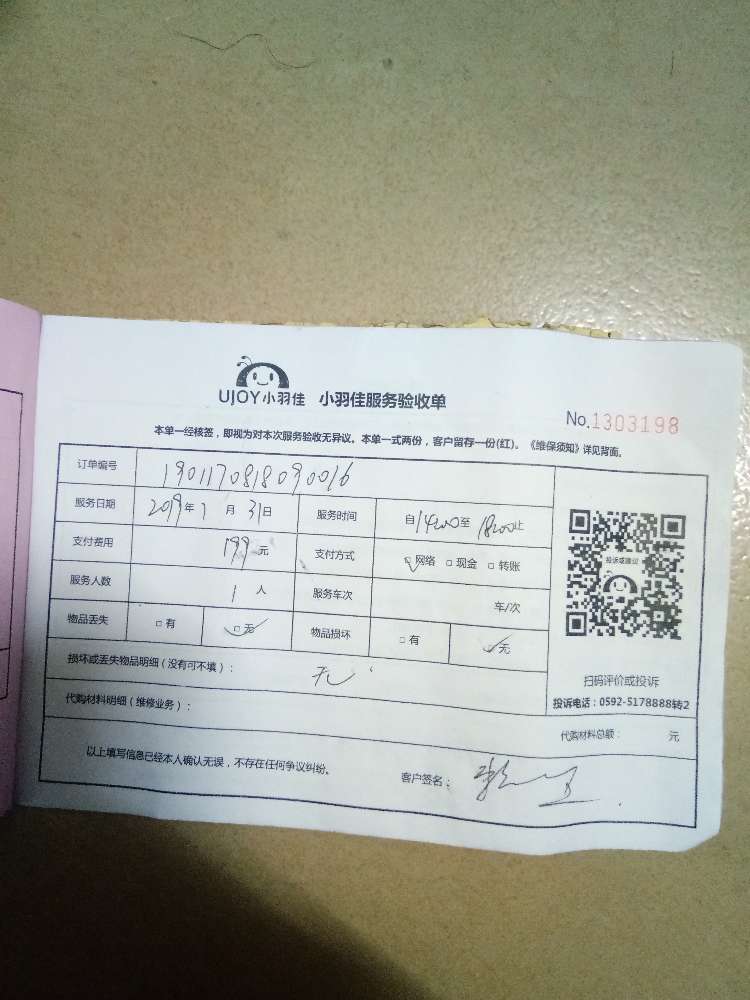 UJOY小羽佳 小羽佳服务验收单
No.1303198
本单一经核签，即视为对本次服务验收无异议。本单一式两份，客户留存一份(红)。《维保须知》详见背面。
订单编号 1901170818090016
服务日期 2019年 1 月 31日 服务时间 自1400至 1800止
支付费用 199元 支付方式 ☑网络 □现金 □转账
服务人数 1 人 服务车次 车/次
物品丢失 □有 ☑无 物品损坏 □有 ☑无
损坏或丢失物品明细（没有可不填）： 无
代购材料明细（维修业务）：
代购材料总额： 元
以上填写信息已经本人确认无误，不存在任何争议纠纷。 客户签名：
投诉或建议
扫码评价或投诉
投诉电话：0592-5178888转2